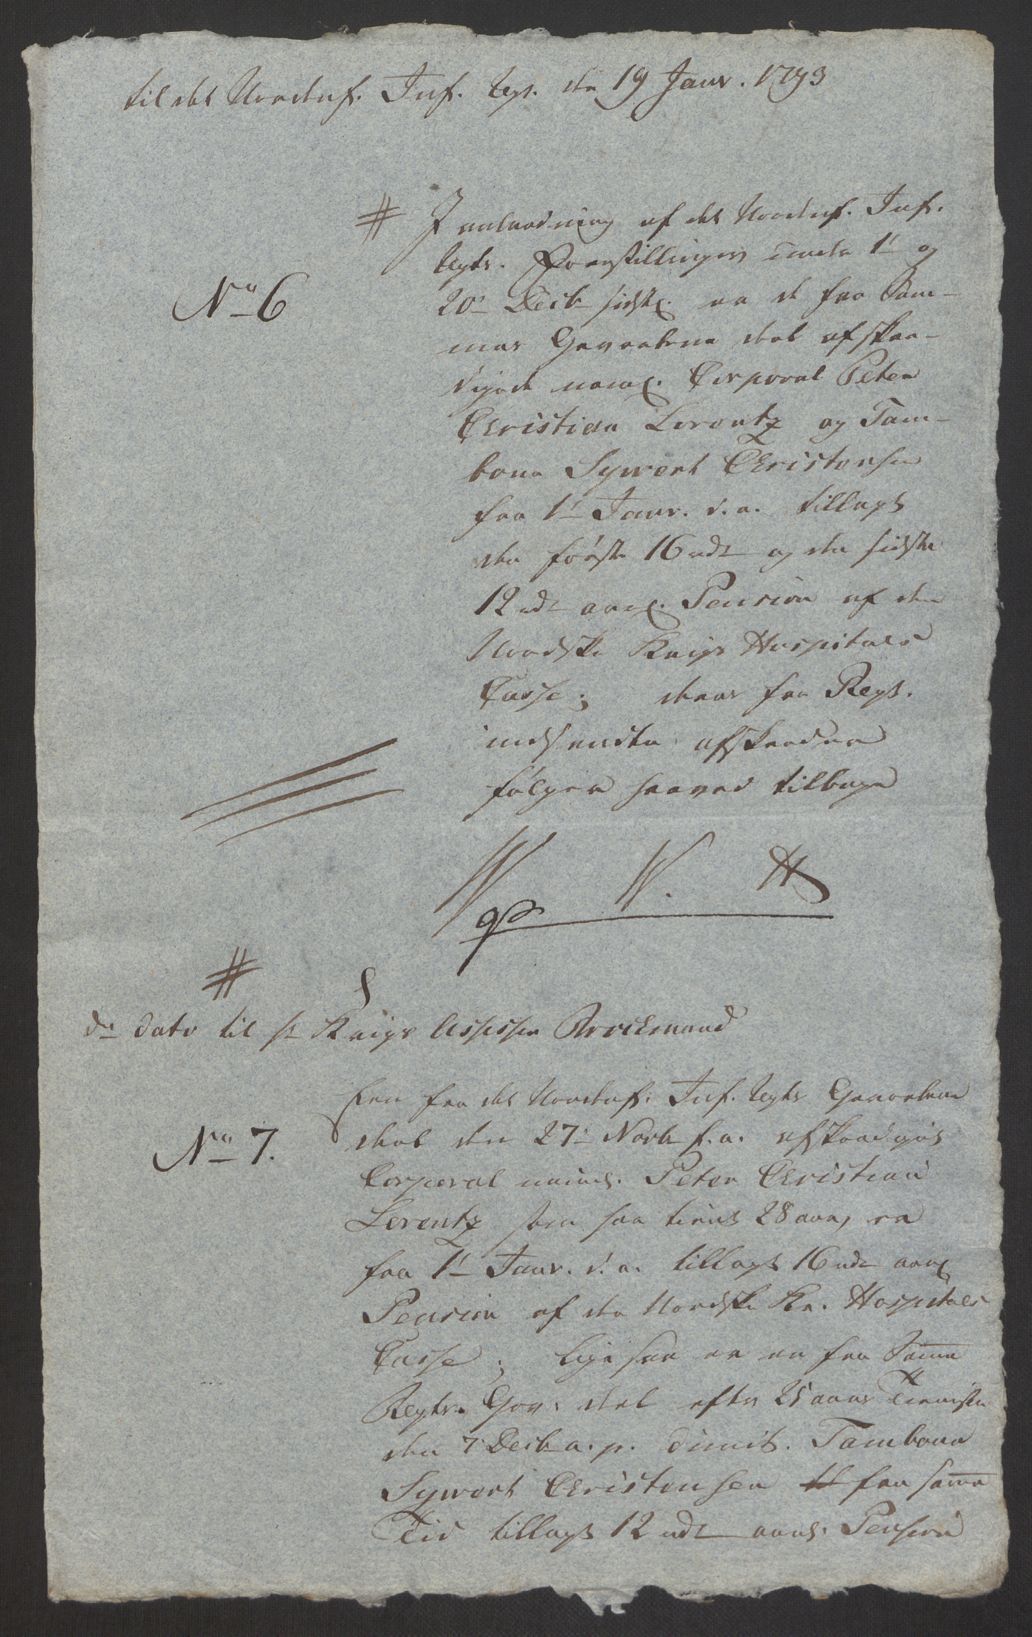 til det Nordenf. Inf. Rgt. den 19 Janr. 1793
No 6
# I anledning af det Nordenf. Inf.
Rgts. Forestillinger under 1te og
20de Decb. sidstl. er de fra Sam-
mes Gevorbene deel afskee-
digede navnl. Corporal Peter
Christian Lorentz og Tam-
bour Sywert Christensen
fra 1te Janr. d. a. tillagt
den förste 16 rdr og den sidste
12 rdr aarl. Pension af den
Norske Krigs Hospitals
Casse; deres fra Regt.
indsendte afskeeder
fölger herved tilbage
W W. H
#
dn dato til Hr Krigs Assessor Brockmand
No 7.
Een fra det Nordenf. Inf. Rgts Gevorbene
deel den 27de Novb. f. a. afskeediget
Corporal navnl. Peter Christian
Lorentz som har tient 28 aar, er
fra 1te Janr. d. a. tillagt 16 rdr aarl.
Pension af den Norske Kr. Hospitals
Casse; ligesaa er en fra Samme
Regts. Gev: deel efter 25 aars Tieneste
den 7 Decb. a. p. dimit. Tambour
Sywert Christensen fra samme
Tid tillagt 12 rdr aarl. Pension